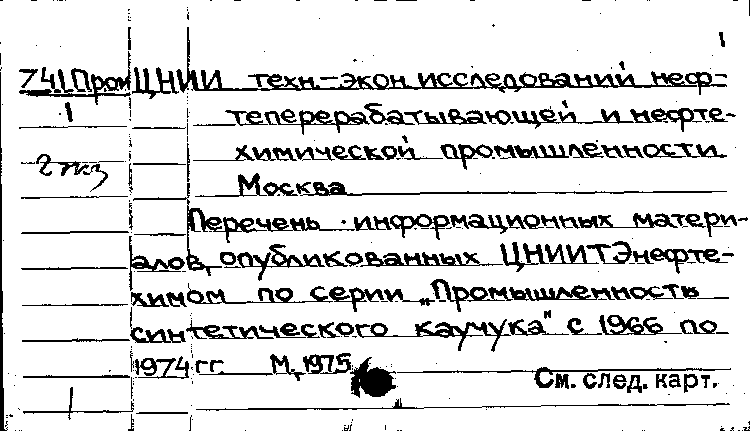 1
Z41Пром ЦНИИ техн.-экон. исследований неф-
1 теперерабатывающей и нефте-
2 экз химической промышленности.
Москва
Перечень информационных матери-
алов, опубликованных ЦНИИТЭнефте-
химом по серии „Промышленность
синтетического каучука" с 1966 по
1974 гг. М., 1975
См. след. карт.
1